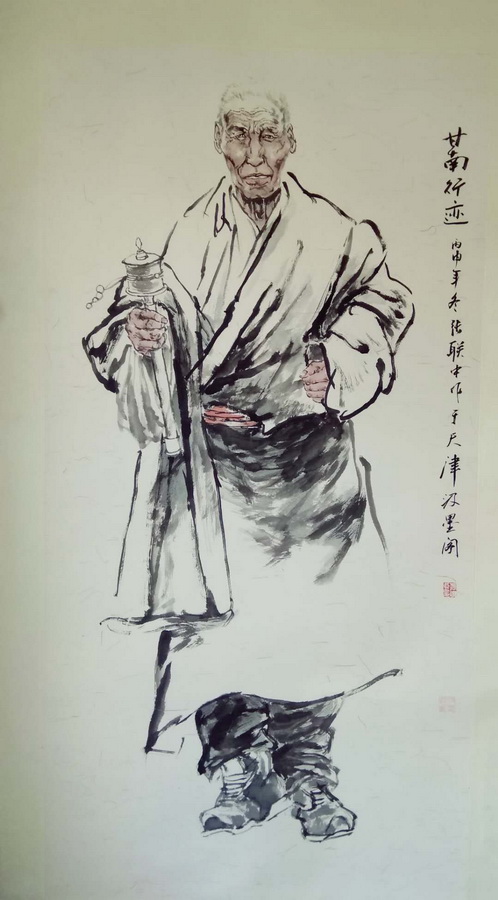 甘南行迹 丙申年冬张联中作于天津汲墨阁